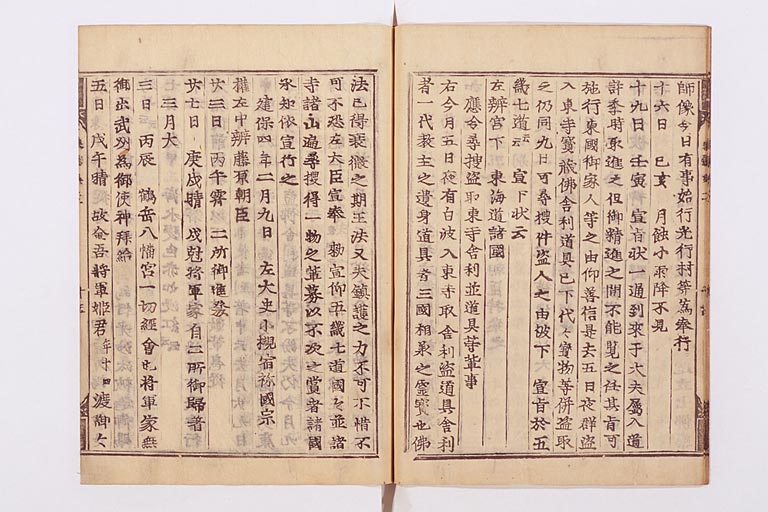 師像今日有事始行光行村等為奉行
十六日　己亥　月蝕小雨降不見
十九日　壬寅　宣旨状一通到来于大夫属入道
許季時取進之但御精進之間不能覧之任其旨可
施行東國御家人等之由仰善信是去五日夜群盗
入東寺寶蔵佛舎利道具已下代々寶物等併盗取
之仍同九日可尋捜件盗人之由被下　宣旨於五
畿七道云々　宣下状云
左辨官下　東海道諸國
應令尋捜盗取東寺舎利並道具等輩事
右今月五日夜有白波入東寺取舎利盗道具舎利
者一代教主之遺身道具者三國相承之霊寶也佛
法已得衰微之期王法又失鎮護之力不可不惜不
可不恐左大臣宣奉　勅宣仰五畿七道國々並諸
寺諸山遍尋捜得一物之輩募以不次之賞者諸國
承知依宣行之
建保四年二月九日　左大史小槻宿祢國宗
權左中辨藤原朝臣
廿三日　丙午霽　二所御進發
廿七日　庚戌晴　戌尅將軍家自二所御歸着
三月大
三日　丙辰　鶴岳八幡宮一切經會也將軍家無
御出武州為御使神拜給
五日　戊午晴　故金吾將軍姫君年十四渡御